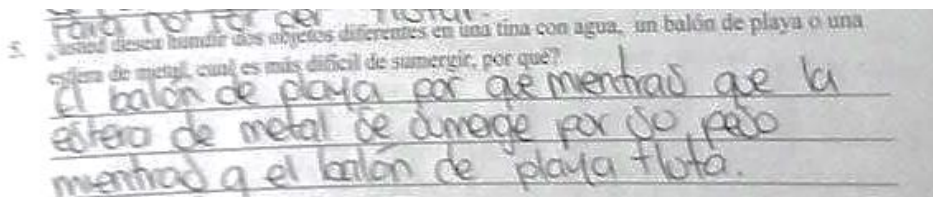 Para no por ser flotar.
5. usted desea hundir dos objetos diferentes en una tina con agua, un balón de playa o una
esfera de metal, cual es más difícil de sumergir, por qué?
el balón de playa por qe mentras qe la
esfera de metal se sumerge por so peso
mientras q el balón de playa flota.